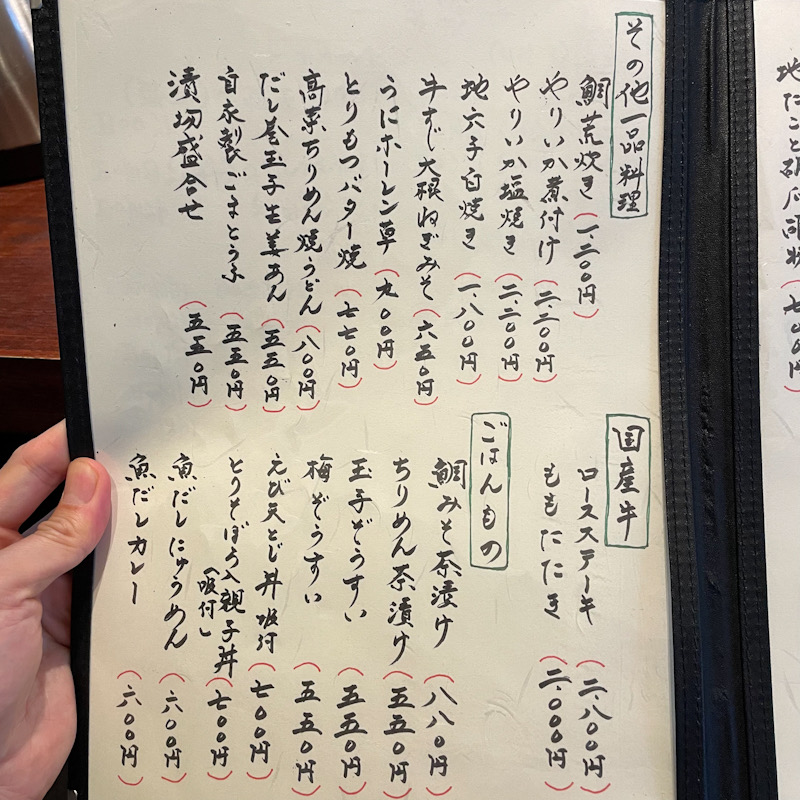 その他一品料理
鯛荒炊き(一.二〇〇円)
やりいか煮付け(二.二〇〇円)
やりいか塩焼き(二.二〇〇円)
地穴子白焼き(一.八〇〇円)
牛すじ大根ねぎみそ(六五〇円)
うにホーレン草(九〇〇円)
とりもつバター焼(七七〇円)
高菜ちりめん焼うどん(八〇〇円)
だし巻玉子生姜あん(五五〇円)
自家製ごまとうふ(五五〇円)
漬物盛合せ(五五〇円)
国産牛
ロースステーキ(二.八〇〇円)
ももたたき(二.〇〇〇円)
ごはんもの
鯛みそ茶漬け(八八〇円)
ちりめん茶漬け(五五〇円)
玉子ぞうすい(五五〇円)
梅ぞうすい(五五〇円)
えび天とじ丼吸付(七〇〇円)
とりそぼろ入親子丼(吸付)(七〇〇円)
魚だしにゅうめん(六〇〇円)
魚だしカレー(六〇〇円)
地たこと胡瓜酢物(七〇〇円)